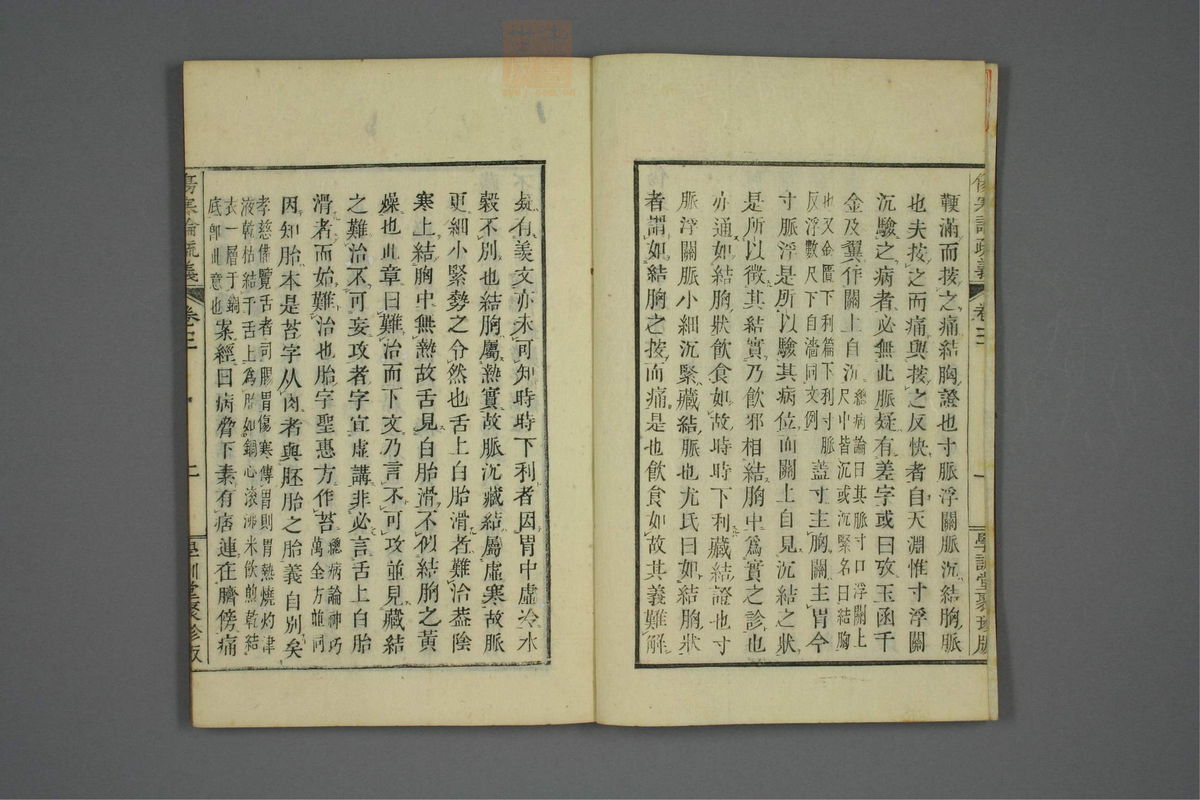 傷寒論疏義 卷三 一 學訓堂聚珍版
鞕滿而按之痛結胸證也寸脈浮關脈沉結胸脈
也夫按之而痛與按之反快者自天淵惟寸浮關
沉驗之病者必無此脈疑有差字或曰攷玉函千
金及翼作關上自沉總病論曰其脈寸口浮關上
尺中皆沉或沉緊名曰結胸
也又金匱下利篇下利寸脈
反浮數尺下自濇同文例蓋寸主胸關主胃今
寸脈浮是所以驗其病位而關上自見沉結之狀
是所以徵其結實乃飲邪相結胸中爲實之診也
亦通如結胸狀飲食如故時時下利藏結證也寸
脈浮關脈小細沉緊藏結脈也尤氏曰如結胸狀
者謂如結胸之按而痛是也飲食如故其義難解
疑有羨文亦未可知時時下利者因胃中虛冷水
穀不別也結胸屬熱實故脈沉藏結屬虛寒故脈
更細小緊勢之令然也舌上白胎滑者難治葢陰
寒上結胸中無熱故舌見白胎滑不似結胸之黃
燥也此章曰難治而下文乃言不可攻並見藏結
之難治不可妄攻者字宜虛講非必言舌上白胎
滑者而始難治也胎字聖惠方作苔總病論神巧
萬全方並同
因知胎本是苔字从肉者與胚胎之胎義自別矣
孝慈備覽舌者司膠胃傷寒傳胃則胃熱燒灼津
液乾枯結于舌上爲胎如鍋心滾沸米飲煎乾結
衣一層于鍋
底卽此意也案經曰病脅下素有痞連在臍傍痛
傷寒論疏義 卷三 二 學訓堂聚珍版